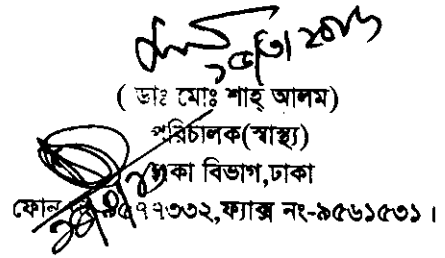 ( ডাঃ মোঃ শাহ্ আলম)
পরিচালক(স্বাস্থ্য)
ঢাকা বিভাগ,ঢাকা
ফোন নং-৯৫৭৭৩৩২,ফ্যাক্স নং-৯৫৬১৫৩১।